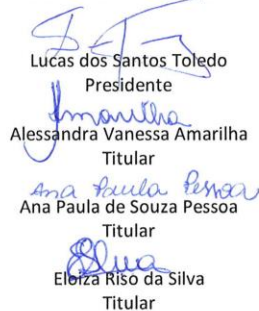 Lucas dos Santos Toledo
Presidente
Amarilha
Alessandra Vanessa Amarilha
Titular
Ana Paula Pessoa
Ana Paula de Souza Pessoa
Titular
Eloiza Riso da Silva
Titular